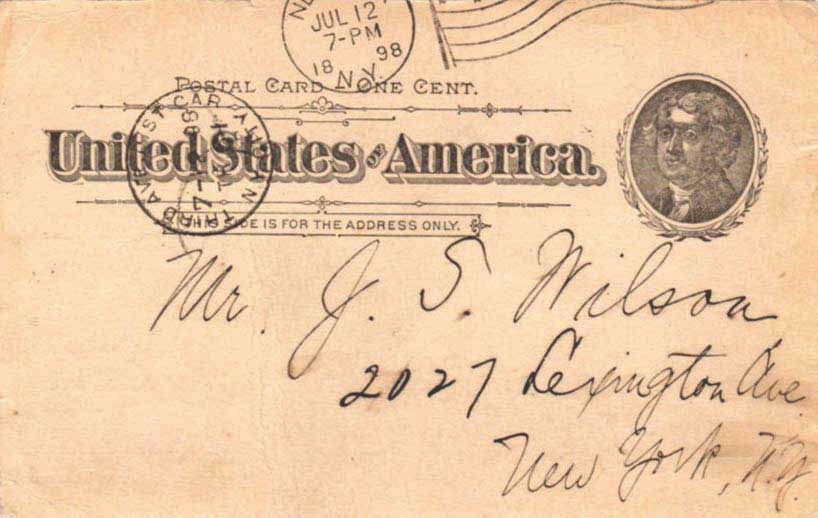 JUL 12
7-PM
18 98
N.Y.
POSTAL CARD ONE CENT.
United States of America.
THIS SIDE IS FOR THE ADDRESS ONLY.
THIRD AVE. ST. CAR
Mr. J. S. Wilson
2027 Lexington Ave.
New York, N.Y.